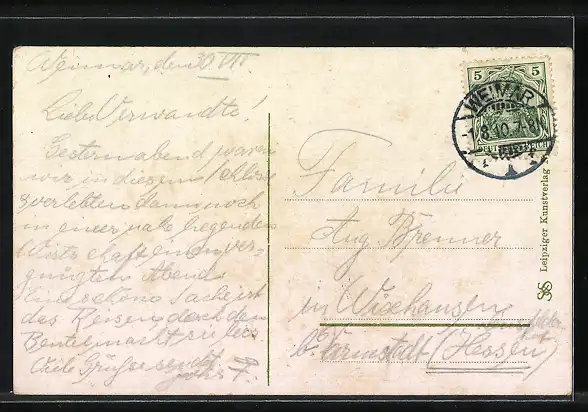 Weimar, den 30 VII.
Liebe Verwandte!
Gestern abend waren
wir in diesem Schloss
verlebten dann noch
in einer nahe liegenden
Wirtschaft einen ver-
gnügten Abend
Eine schöne Sache ist
das Reisen, doch den
Beutel macht sie leer
Viele Grüsse sendet
5 5
WEIMAR
1.8.10.
Familie
Aug. Brenner
in Wixhausen
b. Darmstadt (Hessen)
Leipziger Kunstverlag